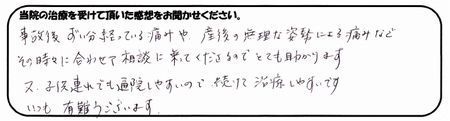 当院の治療を受けて頂いた感想をお聞かせください。
事故後ずい分経っている痛みや、産後の無理な姿勢による痛みなど
その時々に合わせて相談に乗ってくださるのでとても助かります
又、子供連れでも通院しやすいので続けて治療しやすいです
いつも有難うございます。